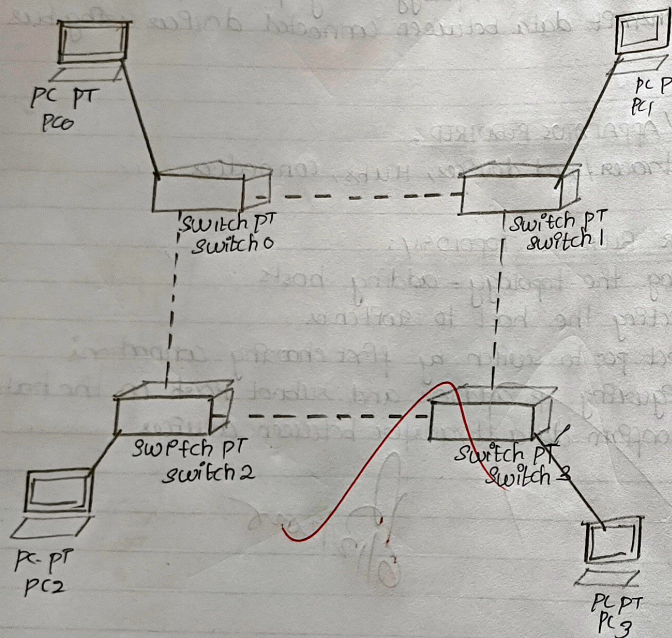 PC PT
PC0
PC P
PC1
Switch PT
Switch 0
Switch PT
Switch 1
Swptch PT
Switch 2
Switch PT
Switch 3
PC-PT
PC2
PC PT
PC3